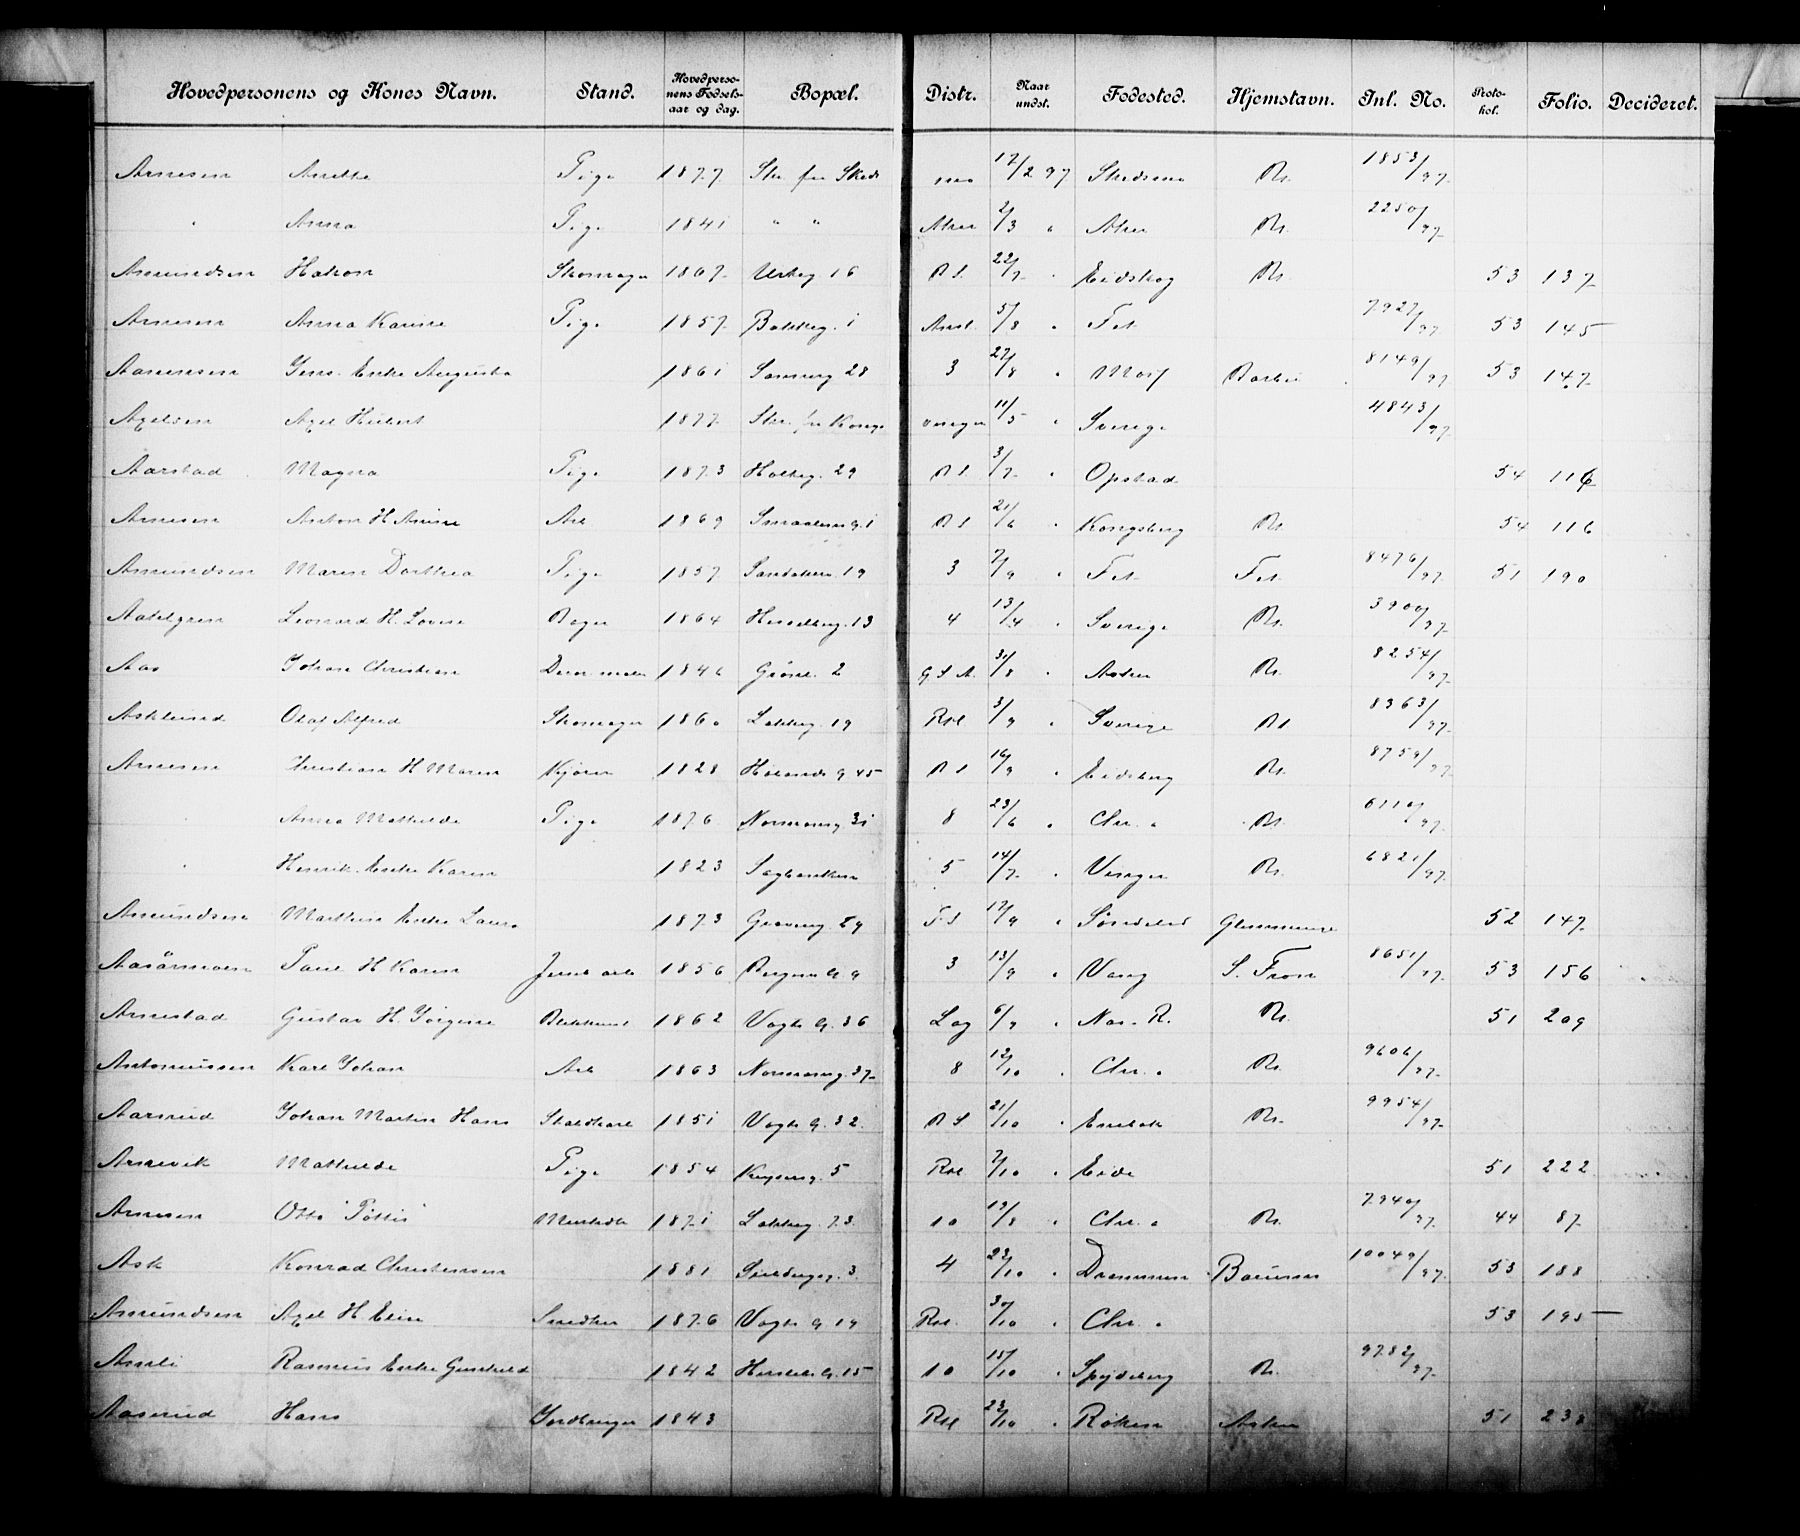 Hovedpersonens og Kones Navn. Stand. Hovedpersonens Fødselsaar og dag. Bopæl. Distr. Naar undst. Fødested. Hjemstavn. Inl. No. Protokol. Folio. Decideret.
Arnesen Anette Pige 1877 Str. fra Skeds mo 17/2 97 Skedsmo Kr. 1853/97
" Anna Pige 1841 " " Aker 2/3 " Aker Kr. 2250/97
Amundsen Hakon Skomager 1867 16 22/7 " Eidskog Kr. 53 137
Arnesen Anna Karine Pige 1857 Bakkeg. 1 5/8 " Fet 7927/97 53 145
Aanensen Jens. Enke Augusta 1861 28 3 27/8 " 8149/97 53 147
Axelsen Axel 1877 Str. fra Kongs vinger 11/5 " Sverige 4843/97
Aarstad Magna Pige 1873 Holteg. 29 3/7 " Opstad 54 116
Arnesen Anton H. Anine Arb 1869 Smaalensg. 1 21/6 " Kongsberg Kr. 54 116
Amundsen Maren Dorthea Pige 1857 Sandakerv. 19 3 7/9 " Fet Fet 8476/97 51 190
Leonard H. Lovise Bager 1864 Hesselbergg. 13 4 13/4 " Sverige Kr. 3900/97
Aas Johan Christian 1846 Grønl. 2 31/8 " Aker Kr. 8254/97
Asklund Olaf Alfred Skomager 1860 Lakkeg. 19 Rol 3/9 " Sverige 8363/97
Arnesen Christian H. Maren Kjører 1828 G. 45 16/9 " Eidsberg Kr. 8759/97
" Anna Mathilde Pige 1876 Normannsg. 31 8 23/6 " Chr. a Kr. 6110/97
" Henrik. Enke Karen 1823 Sagbanken 5 14/7 " Vinger Kr. 6821/97
Amundsen Mathias Enke Laura 1873 17/9 " Søndeled Glemminge 52 147
Paul H. Karen Jernb arb 1856 Bergens G. 9 3 13/9 " Vang S. Fron 8651/97 53 156
Arnestad Gustav H. Jörgine 1862 Vogts G. 36 Lag 6/9 " Nes. R. Kr. 51 209
Antoniussen Karl Johan Arb 1863 Normannsg. 37 8 12/10 " Chr. a Kr. 9606/97
Aarsrud Johan Martin Hans Staldkarl 1851 Vogts G. 32 21/10 " Enebak Kr. 9954/97
Arnevik Mathilde Pige 1854 Keysersg. 5 Rol 7/10 " Eide 51 222
Arnesen Otto "Pøttis" 1871 Lakkeg. 73 10 19/8 " Chr. a Kr. 7940/97 44 87
Ask Konrad Christensen 1881 3 4 22/10 " Drammen Bærum 10049/97 53 188
Amundsen Axel H. Elise 1876 Vogts G. 19 Rol. 30/10 " Chr. a 53 195
Amli Rasmus Enke Gunhild 1842 Herslebs G. 15 10 15/10 " Spydeberg Kr. 9782/97
Aaserud Hans Jordbruger 1843 Rol 23/10 " Røken Asker 51